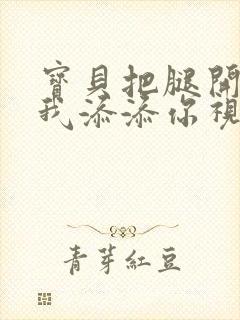 寶貝把腿開
我添添你視
青芽紅豆